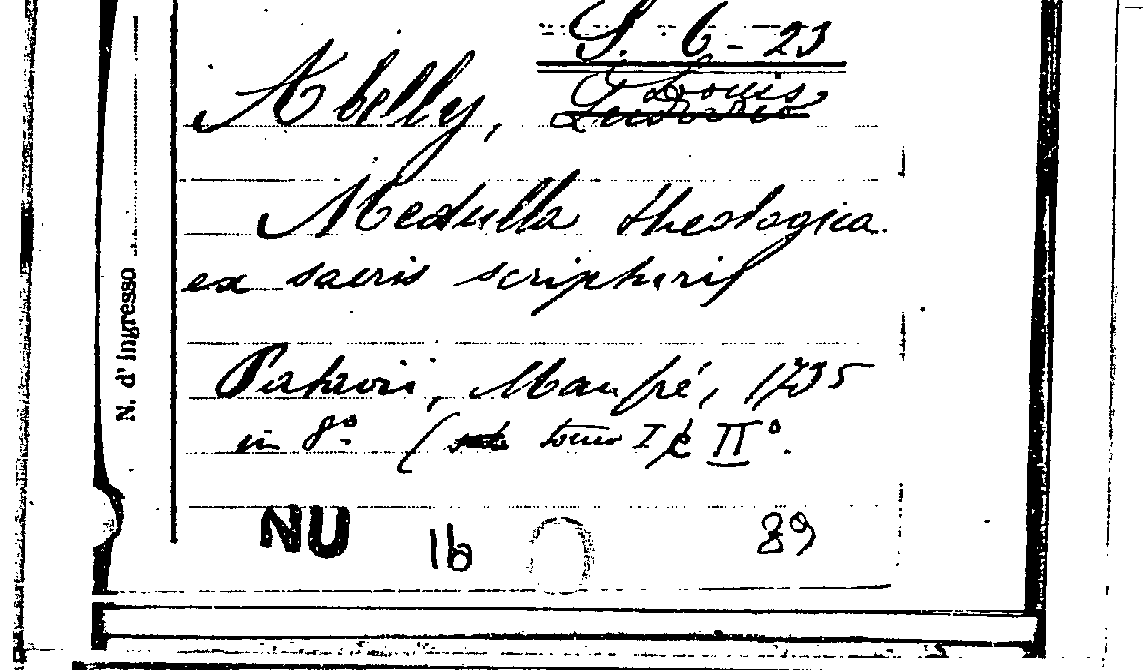 S. 6-23
Abelly, Louis
Ludovic
Medulla theologica
ex sacris scripturis
Patavii, Manfrè, 1735
in 8º (solo tomo I e IIº.
N. d'Ingresso
NU 1b 89